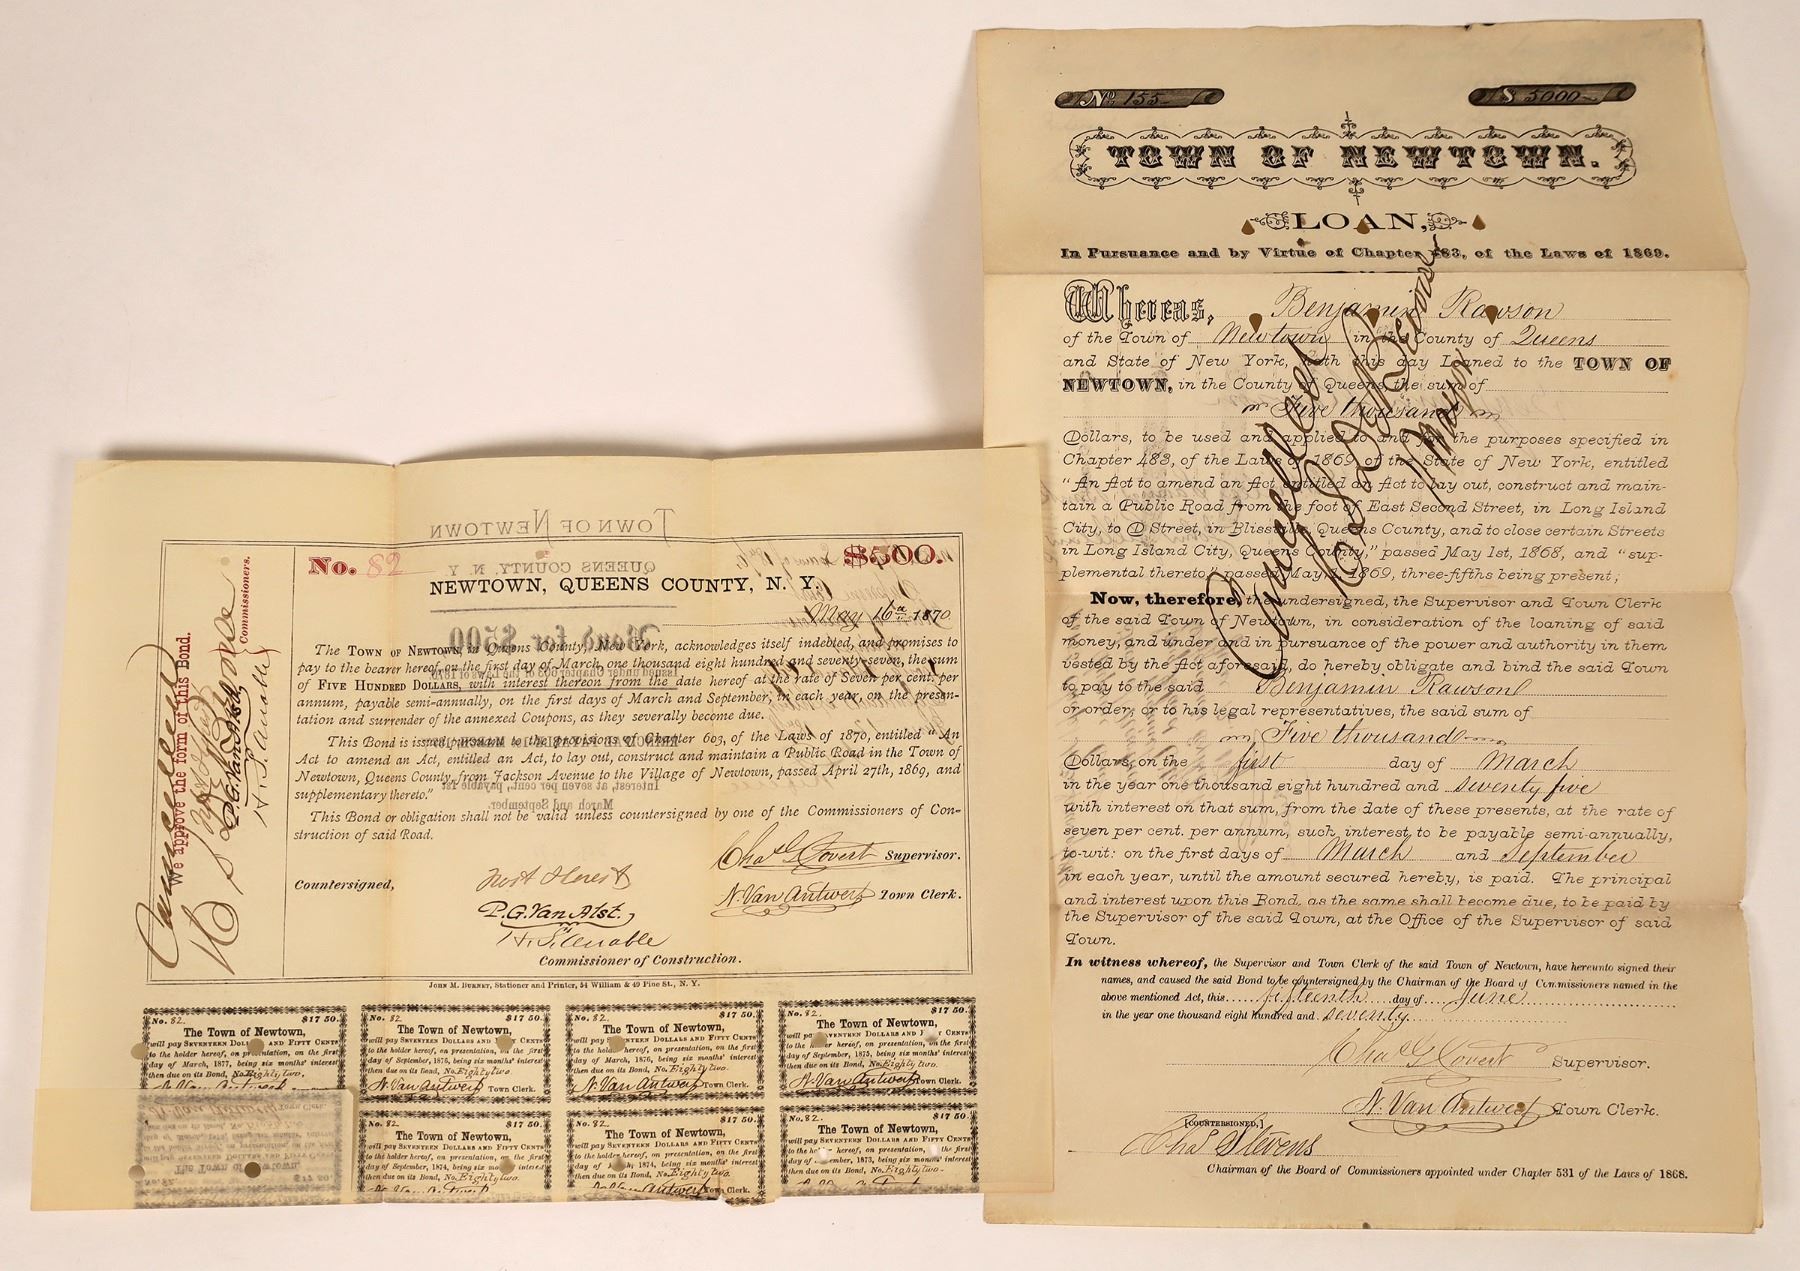 TOWN OF NEWTOWN
QUEENS COUNTY, N. Y.
No. 82
$500.
NEWTOWN, QUEENS COUNTY, N. Y.
May 16th 1870
Bond for $500
The TOWN OF NEWTOWN, in Queens County, New York, acknowledges itself indebted, and promises to
pay to the bearer hereof, on the first day of March, one thousand eight hundred and seventy-seven, the sum
of FIVE HUNDRED DOLLARS, with interest thereon from the date hereof at the rate of Seven per cent. per
annum, payable semi-annually, on the first days of March and September, in each year, on the presen-
tation and surrender of the annexed Coupons, as they severally become due.
This Bond is issued pursuant to the provision of Chapter 603, of the Laws of 1870, entitled "An
Act to amend an Act, entitled an Act, to lay out, construct and maintain a Public Road in the Town of
Newtown, Queens County, from Jackson Avenue to the Village of Newtown, passed April 27th, 1869, and
supplementary thereto."
Interest, at seven per cent., payable 1st
March and September.
This Bond or obligation shall not be valid unless countersigned by one of the Commissioners of Con-
struction of said Road.
Chas G Covert Supervisor.
Countersigned,
N. Van Antwerp Town Clerk.
P. G. Van Alst.
Commissioner of Construction.
We approve the form of this Bond.
Cancelled
P.G. Van Alst
Commissioners.
JOHN M. BURNET, Stationer and Printer, 54 William & 49 Pine St., N. Y.
No. 82. $17 50.
The Town of Newtown,
will pay SEVENTEEN DOLLARS AND FIFTY CENTS
to the holder hereof, on presentation, on the first
day of March, 1877, being six months' interest
then due on its Bond, No. Eighty two.
N. Van Antwerp
No. 82. $17 50.
The Town of Newtown,
will pay SEVENTEEN DOLLARS AND FIFTY CENTS
to the holder hereof, on presentation, on the first
day of September, 1876, being six months' interest
then due on its Bond, No. Eighty two.
N. Van Antwerp Town Clerk.
No. 82. $17 50.
The Town of Newtown,
will pay SEVENTEEN DOLLARS AND FIFTY CENTS
to the holder hereof, on presentation, on the first
day of March, 1876, being six months' interest
then due on its Bond, No. Eighty two.
N. Van Antwerp Town Clerk.
No. 82. $17 50.
The Town of Newtown,
will pay SEVENTEEN DOLLARS AND FIFTY CENTS
to the holder hereof, on presentation, on the first
day of September, 1875, being six months' interest
then due on its Bond, No. Eighty two.
N. Van Antwerp Town Clerk.
N. Van Antwerp Town Clerk.
The Town of Newtown,
$17 50.
No. 82. $17 50.
The Town of Newtown,
will pay SEVENTEEN DOLLARS AND FIFTY CENTS
to the holder hereof, on presentation, on the first
day of September, 1874, being six months' interest
then due on its Bond, No. Eighty two.
No. 82. $17 50.
The Town of Newtown,
will pay SEVENTEEN DOLLARS AND FIFTY CENTS
to the holder hereof, on presentation, on the first
day of 1874, being six months' interest
then due on its Bond, No. Eighty two.
Van Antwerp Town Clerk.
No. 82. $17 50.
The Town of Newtown,
will pay SEVENTEEN DOLLARS AND FIFTY CENTS
to the holder hereof, on presentation, on the first
day of September, 1873, being six months' interest
then due on its Bond, No. Eighty two.
No. 155
$ 5000
TOWN OF NEWTOWN.
LOAN,
In Pursuance and by Virtue of Chapter 483, of the Laws of 1869.
Whereas, Benjamin Rawson
of the Town of Newtown in the County of Queens
and State of New York, hath this day Loaned to the TOWN OF
NEWTOWN, in the County of Queens, the sum of
Five thousand
Dollars, to be used and applied to and for the purposes specified in
Chapter 483, of the Laws of 1869, of the State of New York, entitled
"An Act to amend an Act entitled an Act to lay out, construct and main-
tain a Public Road from the foot of East Second Street, in Long Island
City, to D Street, in Blissville, Queens County, and to close certain Streets
in Long Island City, Queens County," passed May 1st, 1868, and "sup-
plemental thereto," passed May 1, 1869, three-fifths being present;
Now, therefore, the undersigned, the Supervisor and Town Clerk
of the said Town of Newtown, in consideration of the loaning of said
money, and under and in pursuance of the power and authority in them
vested by the Act aforesaid, do hereby obligate and bind the said Town
to pay to the said Benjamin Rawson
or order, or to his legal representatives, the said sum of
Five thousand
Dollars, on the first day of March
in the year one thousand eight hundred and seventy five
with interest on that sum, from the date of these presents, at the rate of
seven per cent. per annum, such interest, to be payable semi-annually,
to-wit: on the first days of March and September
in each year, until the amount secured hereby, is paid. The principal
and interest upon this Bond, as the same shall become due, to be paid by
the Supervisor of the said Town, at the Office of the Supervisor of said
Town.
In witness whereof, the Supervisor and Town Clerk of the said Town of Newtown, have hereunto signed their
names, and caused the said Bond to be countersigned by the Chairman of the Board of Commissioners named in the
above mentioned Act, this fifteenth day of June
in the year one thousand eight hundred and seventy
Chas G Covert Supervisor.
N. Van Antwerp Town Clerk.
[COUNTERSIGNED,]
Chas Stevens
Chairman of the Board of Commissioners appointed under Chapter 531 of the Laws of 1868.
Cancelled